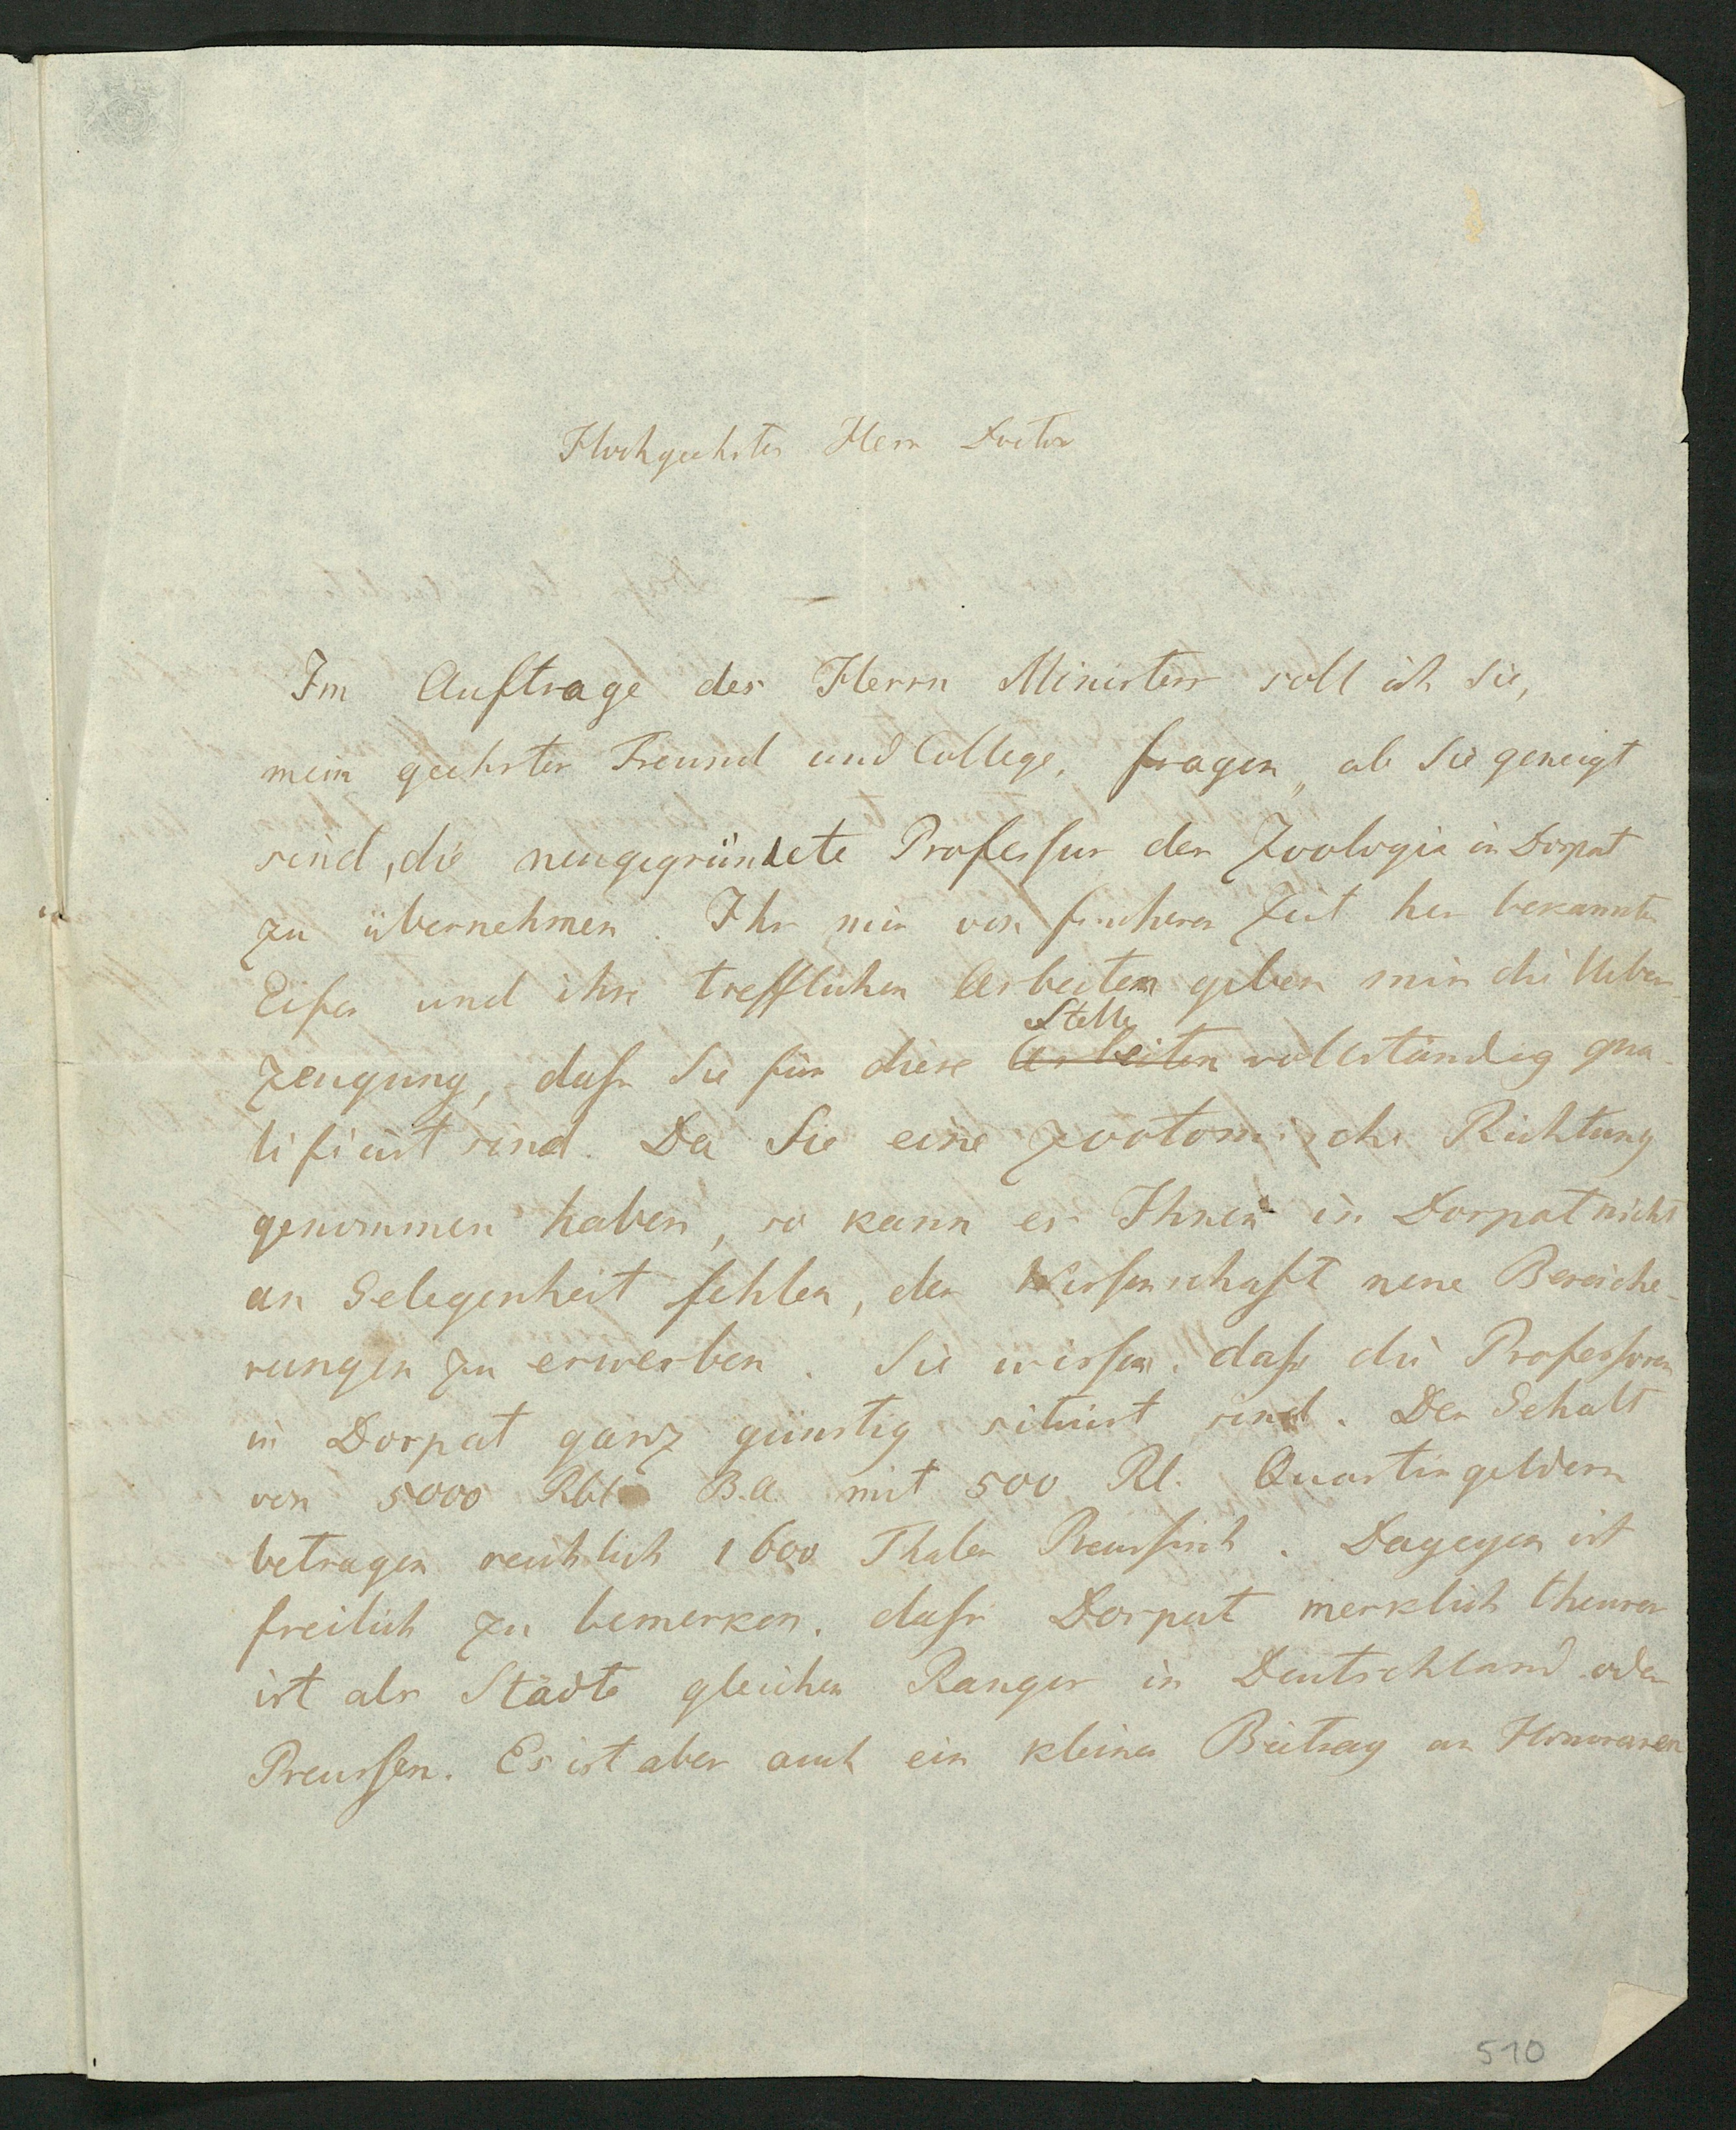 Hochgeehrter Herr Doctor
Im Auftrage des Herrn Ministers soll ich Sie,
mein geehrter Freund und College, fragen, ob Sie geneigt
sind, die neugegründete Professur der Zoologie in Dorpat
zu übernehmen. Ihr mir von früherer Zeit her bekannter
Eifer und ihre trefflichen Arbeiten geben mir die Ueber-
Stelle
zeugung, dass Sie für diese Arbeiten vollständig qua-
lificirt sind. Da Sie eine zootomische Richtung
genommen haben, so kann es Ihnen in Dorpat nicht
an Gelegenheit fehlen, der Wissenschaft neue Bereiche-
rungen zu erwerben. Sie wissen, dass die Professoren
in Dorpat ganz günstig situirt sind. Der Gehalt
von 5000 Rbl B.A. mit 500 Rl. Quartiergeldern
betragen reichlich 1600 Thaler Preussisch. Dagegen ist
freilich zu bemerken, dass Dorpat merklich theurer
ist als Städte gleichen Ranges in Deutschland oder
Preussen. Es ist aber auch ein kleiner Beitrag an Honoraren
510